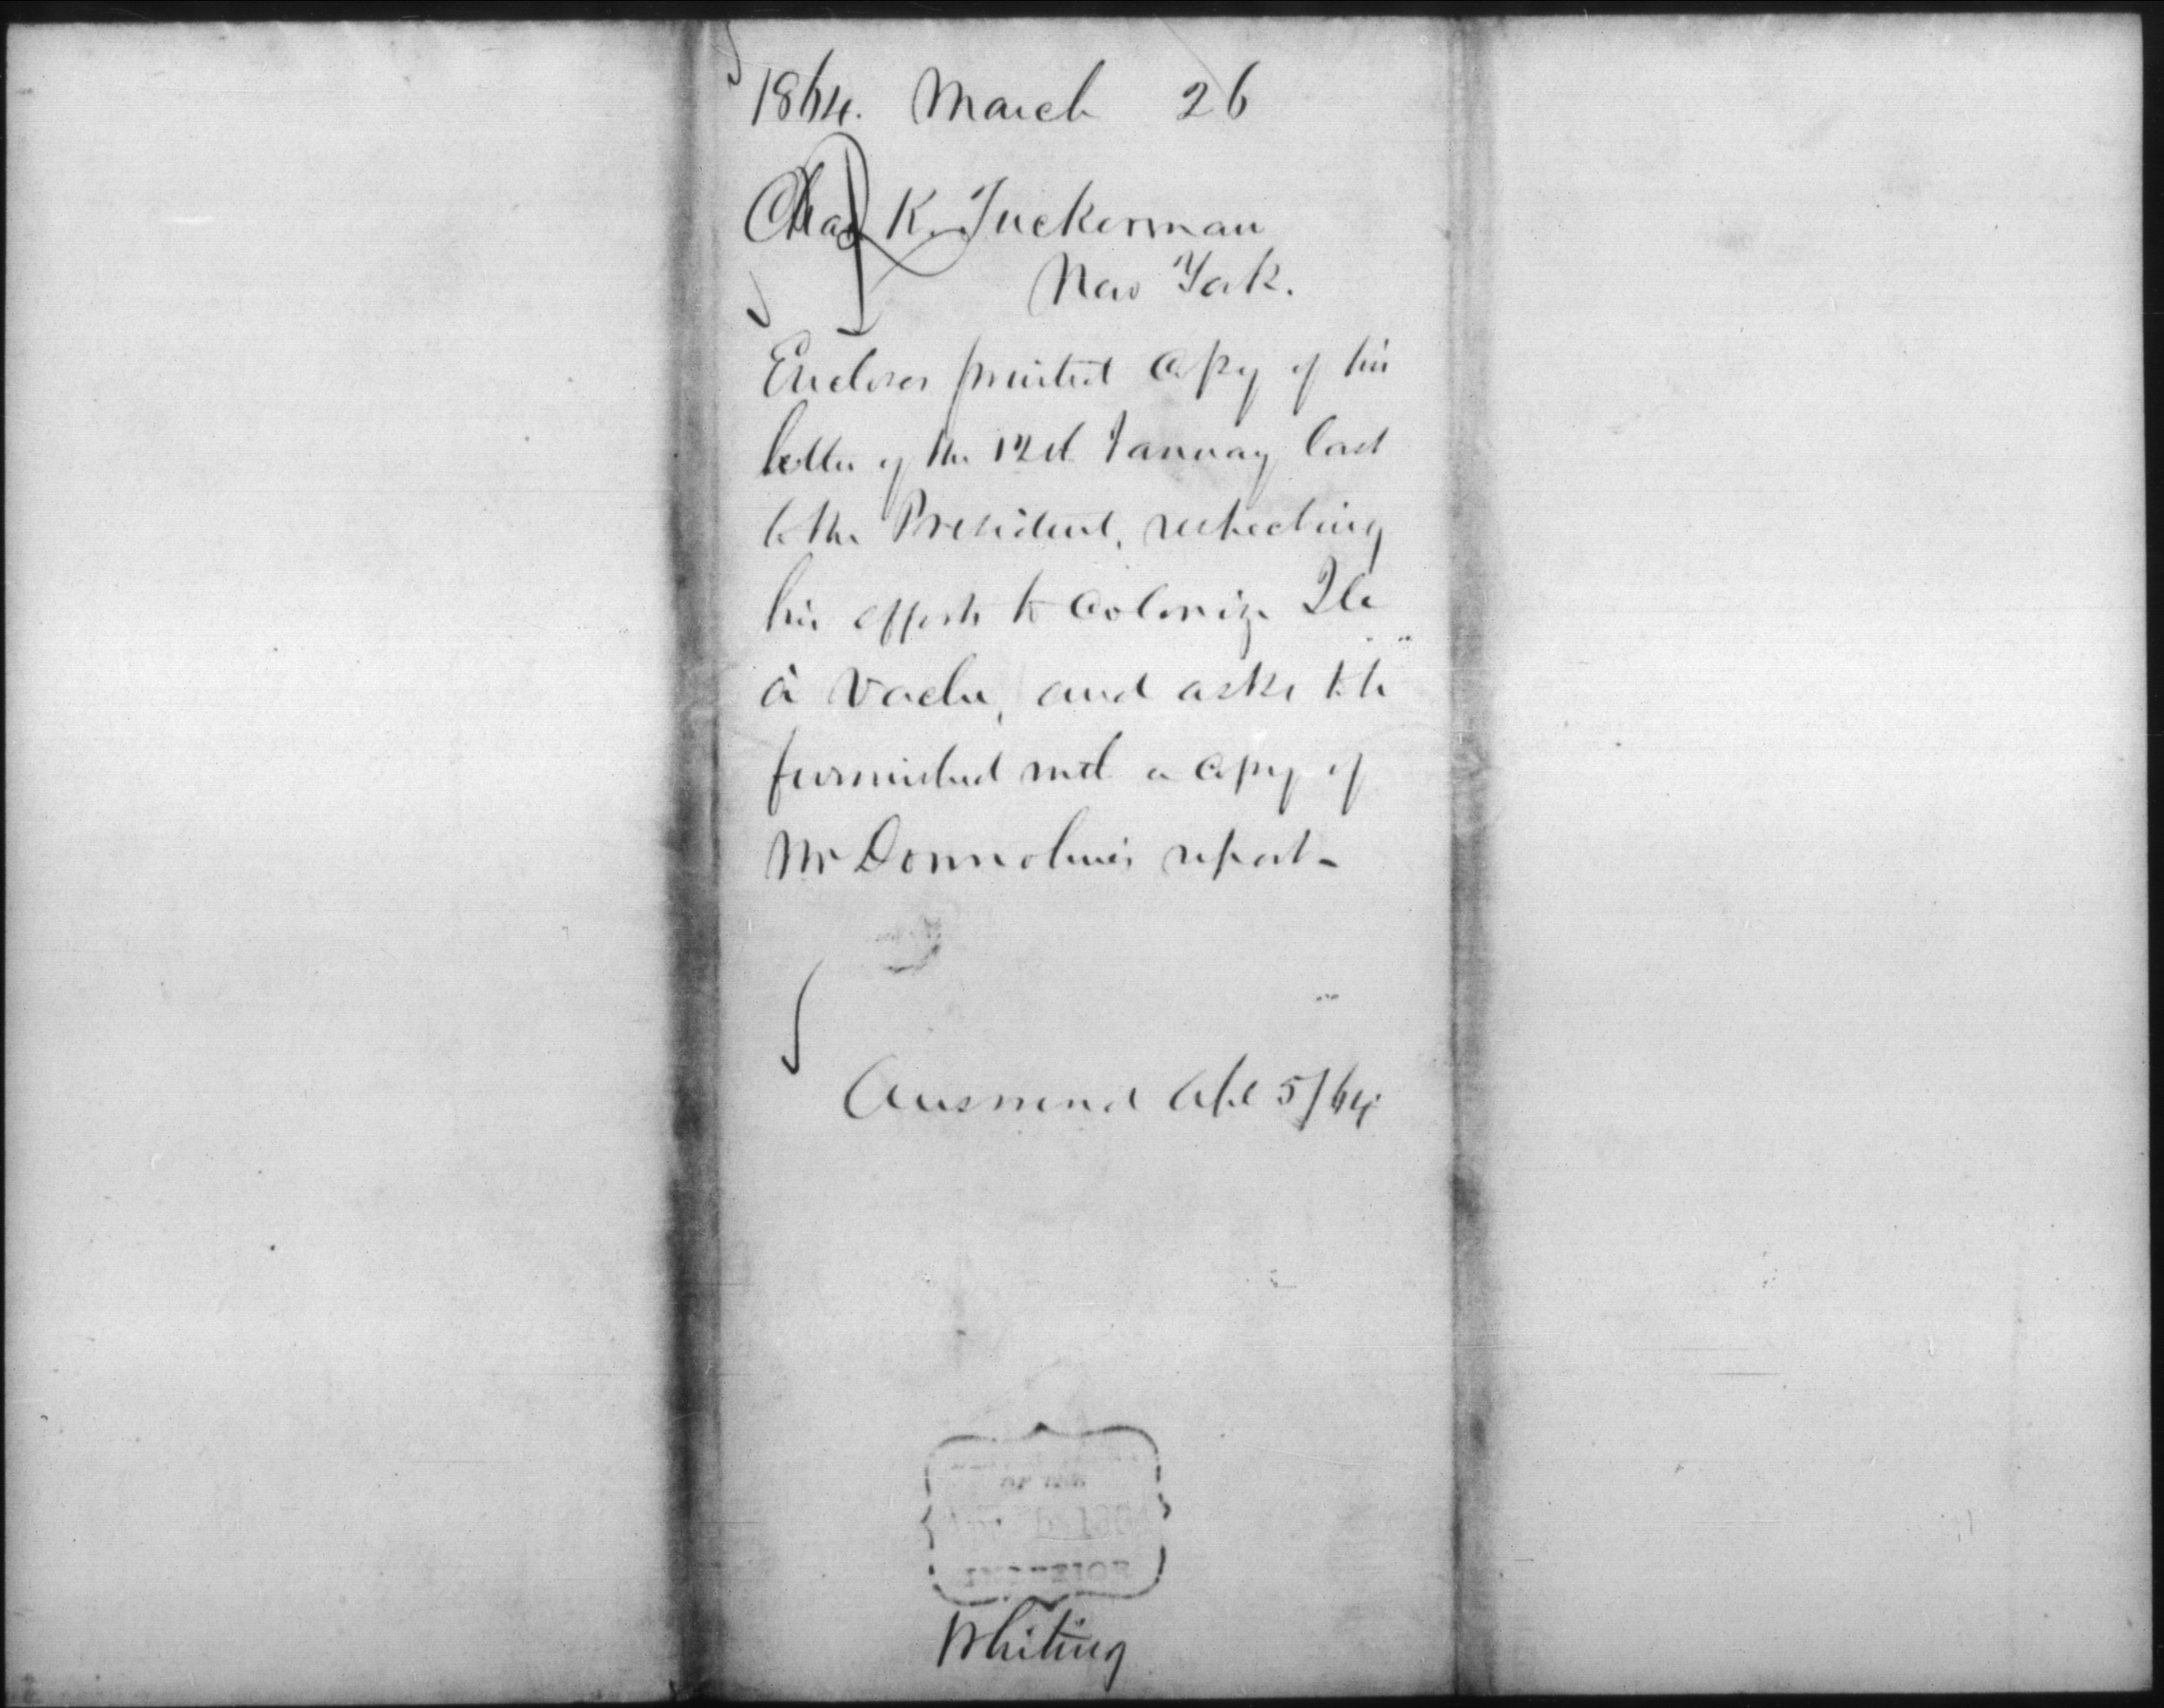 1864. March 26
Chas K. Tuckerman
New York.
Encloses printed copy of his
letter of the 12th January last
to the President, respecting
his efforts to colonize Ile
à Vache, and asks to be
furnished with a copy of
Mr Donnohue's report-
Answered Apl 5/64
INTERIOR
Whiting